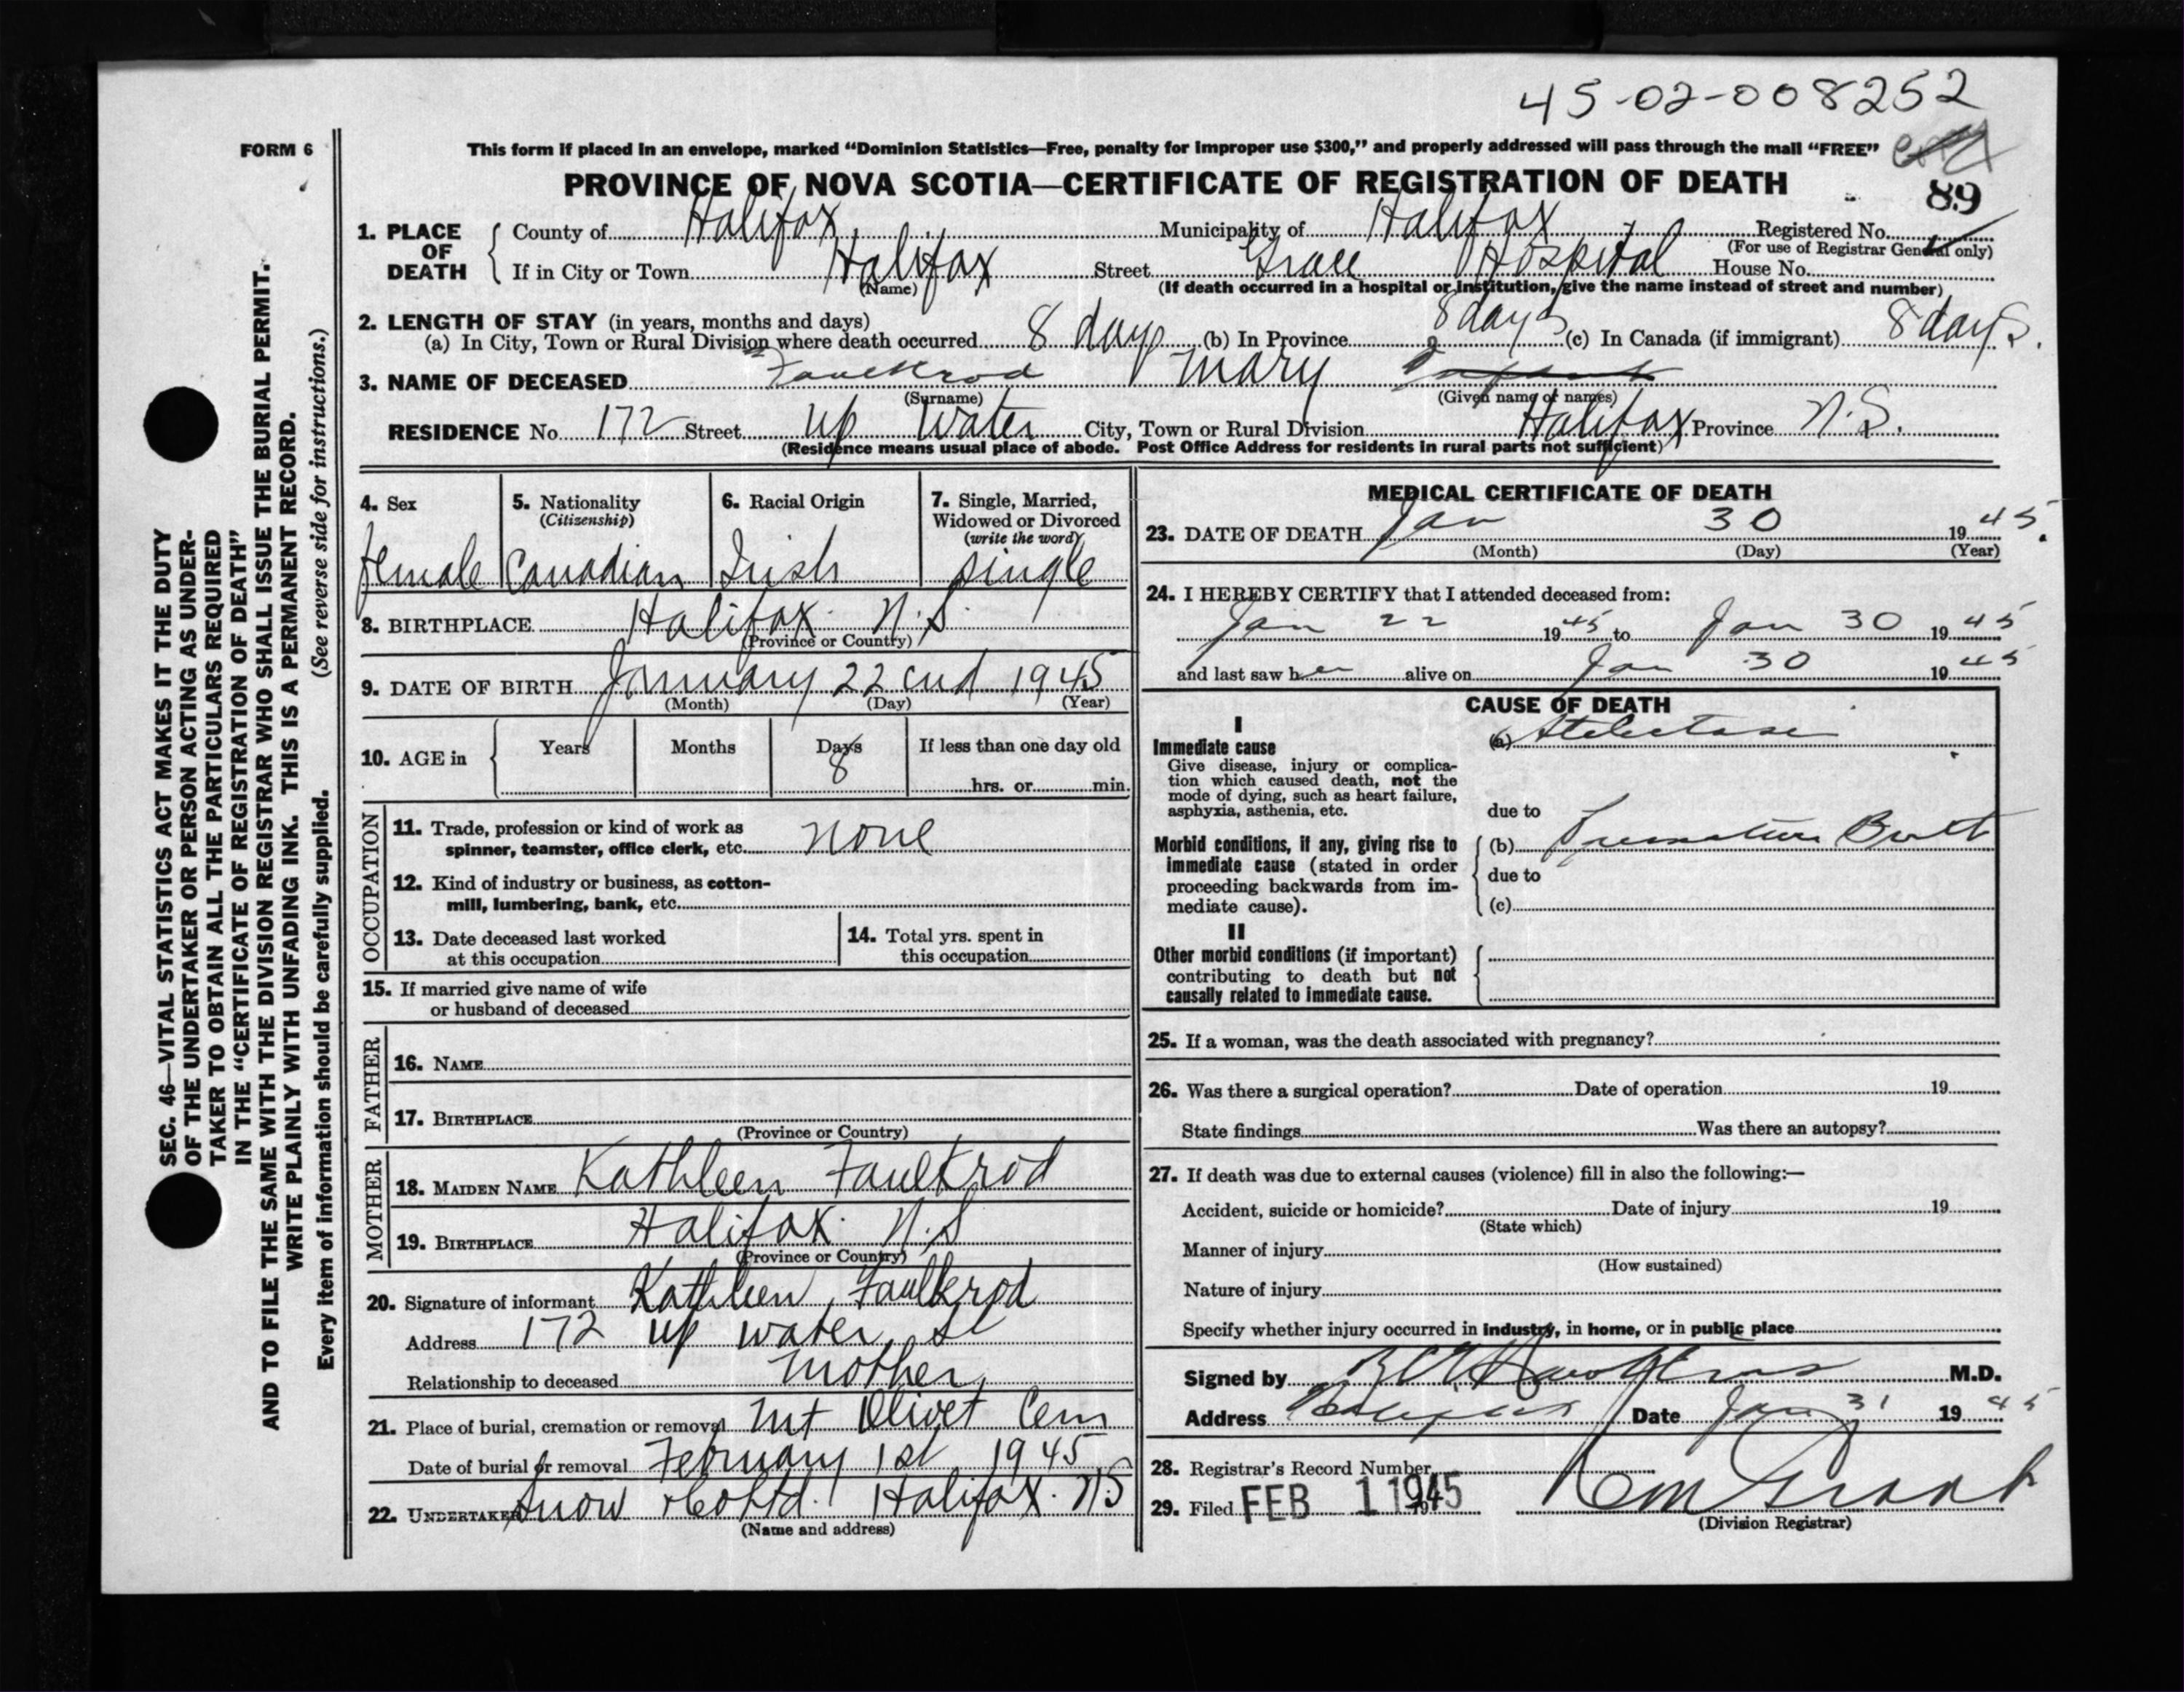 45-02-008252
FORM 6
This form if placed in an envelope, marked “Dominion Statistics—Free, penalty for improper use $300,” and properly addressed will pass through the mail “FREE”
PROVINCE OF NOVA SCOTIA—CERTIFICATE OF REGISTRATION OF DEATH
89
1. PLACE OF DEATH
County of Halifax Municipality of Halifax Registered No.
(For use of Registrar General only)
If in City or Town Halifax Street Grace Hospital House No.
(Name) (If death occurred in a hospital or institution, give the name instead of street and number)
2. LENGTH OF STAY (in years, months and days)
(a) In City, Town or Rural Division where death occurred 8 days (b) In Province 8 days (c) In Canada (if immigrant) 8 days.
3. NAME OF DECEASED Faulkrod Mary Infant
(Surname) (Given name of names)
RESIDENCE No. 172 Street Up Water City, Town or Rural Division Halifax Province N.S.
(Residence means usual place of abode. Post Office Address for residents in rural parts not sufficient)
4. Sex
female
5. Nationality
(Citizenship)
Canadian
6. Racial Origin
Irish
7. Single, Married, Widowed or Divorced
(write the word)
single
8. BIRTHPLACE Halifax. N.S.
(Province or Country)
9. DATE OF BIRTH January 22 1945
(Month) (Day) (Year)
10. AGE in Years Months Days If less than one day old
8 hrs. or min.
OCCUPATION
11. Trade, profession or kind of work as
spinner, teamster, office clerk, etc. none
12. Kind of industry or business, as cotton-
mill, lumbering, bank, etc.
13. Date deceased last worked
at this occupation
14. Total yrs. spent in
this occupation
15. If married give name of wife
or husband of deceased
FATHER
16. NAME
17. BIRTHPLACE
(Province or Country)
MOTHER
18. MAIDEN NAME Kathleen Faulkrod
19. BIRTHPLACE Halifax. N.S
(Province or Country)
20. Signature of informant Kathleen Faulkrod
Address 172 up water St
Relationship to deceased mother
21. Place of burial, cremation or removal Mt Olivet Cem
Date of burial or removal February 1st 1945
22. UNDERTAKER Snow & Co Ltd. Halifax. N.S
(Name and address)
MEDICAL CERTIFICATE OF DEATH
23. DATE OF DEATH Jan 30 1945.
(Month) (Day) (Year)
24. I HEREBY CERTIFY that I attended deceased from:
Jan 22 1945 to Jan 30 1945
and last saw her alive on Jan 30 1945
CAUSE OF DEATH
I
Immediate cause
Give disease, injury or complica-
tion which caused death, not the
mode of dying, such as heart failure,
asphyxia, asthenia, etc.
(a) Atelectasis
due to
Morbid conditions, if any, giving rise to
immediate cause (stated in order
proceeding backwards from im-
mediate cause).
(b) Premature Birth
due to
(c)
II
Other morbid conditions (if important)
contributing to death but not
causally related to immediate cause.
25. If a woman, was the death associated with pregnancy?
26. Was there a surgical operation? Date of operation 19
State findings Was there an autopsy?
27. If death was due to external causes (violence) fill in also the following:—
Accident, suicide or homicide? Date of injury 19
(State which)
Manner of injury
(How sustained)
Nature of injury
Specify whether injury occurred in industry, in home, or in public place
Signed by M.D.
Address Halifax Date Jan 31 1945
28. Registrar's Record Number
29. Filed FEB 1 1945 19
(Division Registrar)
SEC. 46—VITAL STATISTICS ACT MAKES IT THE DUTY
OF THE UNDERTAKER OR PERSON ACTING AS UNDER-
TAKER TO OBTAIN ALL THE PARTICULARS REQUIRED
IN THE “CERTIFICATE OF REGISTRATION OF DEATH”
AND TO FILE THE SAME WITH THE DIVISION REGISTRAR WHO SHALL ISSUE THE BURIAL PERMIT.
WRITE PLAINLY WITH UNFADING INK. THIS IS A PERMANENT RECORD.
Every item of information should be carefully supplied. (See reverse side for instructions.)